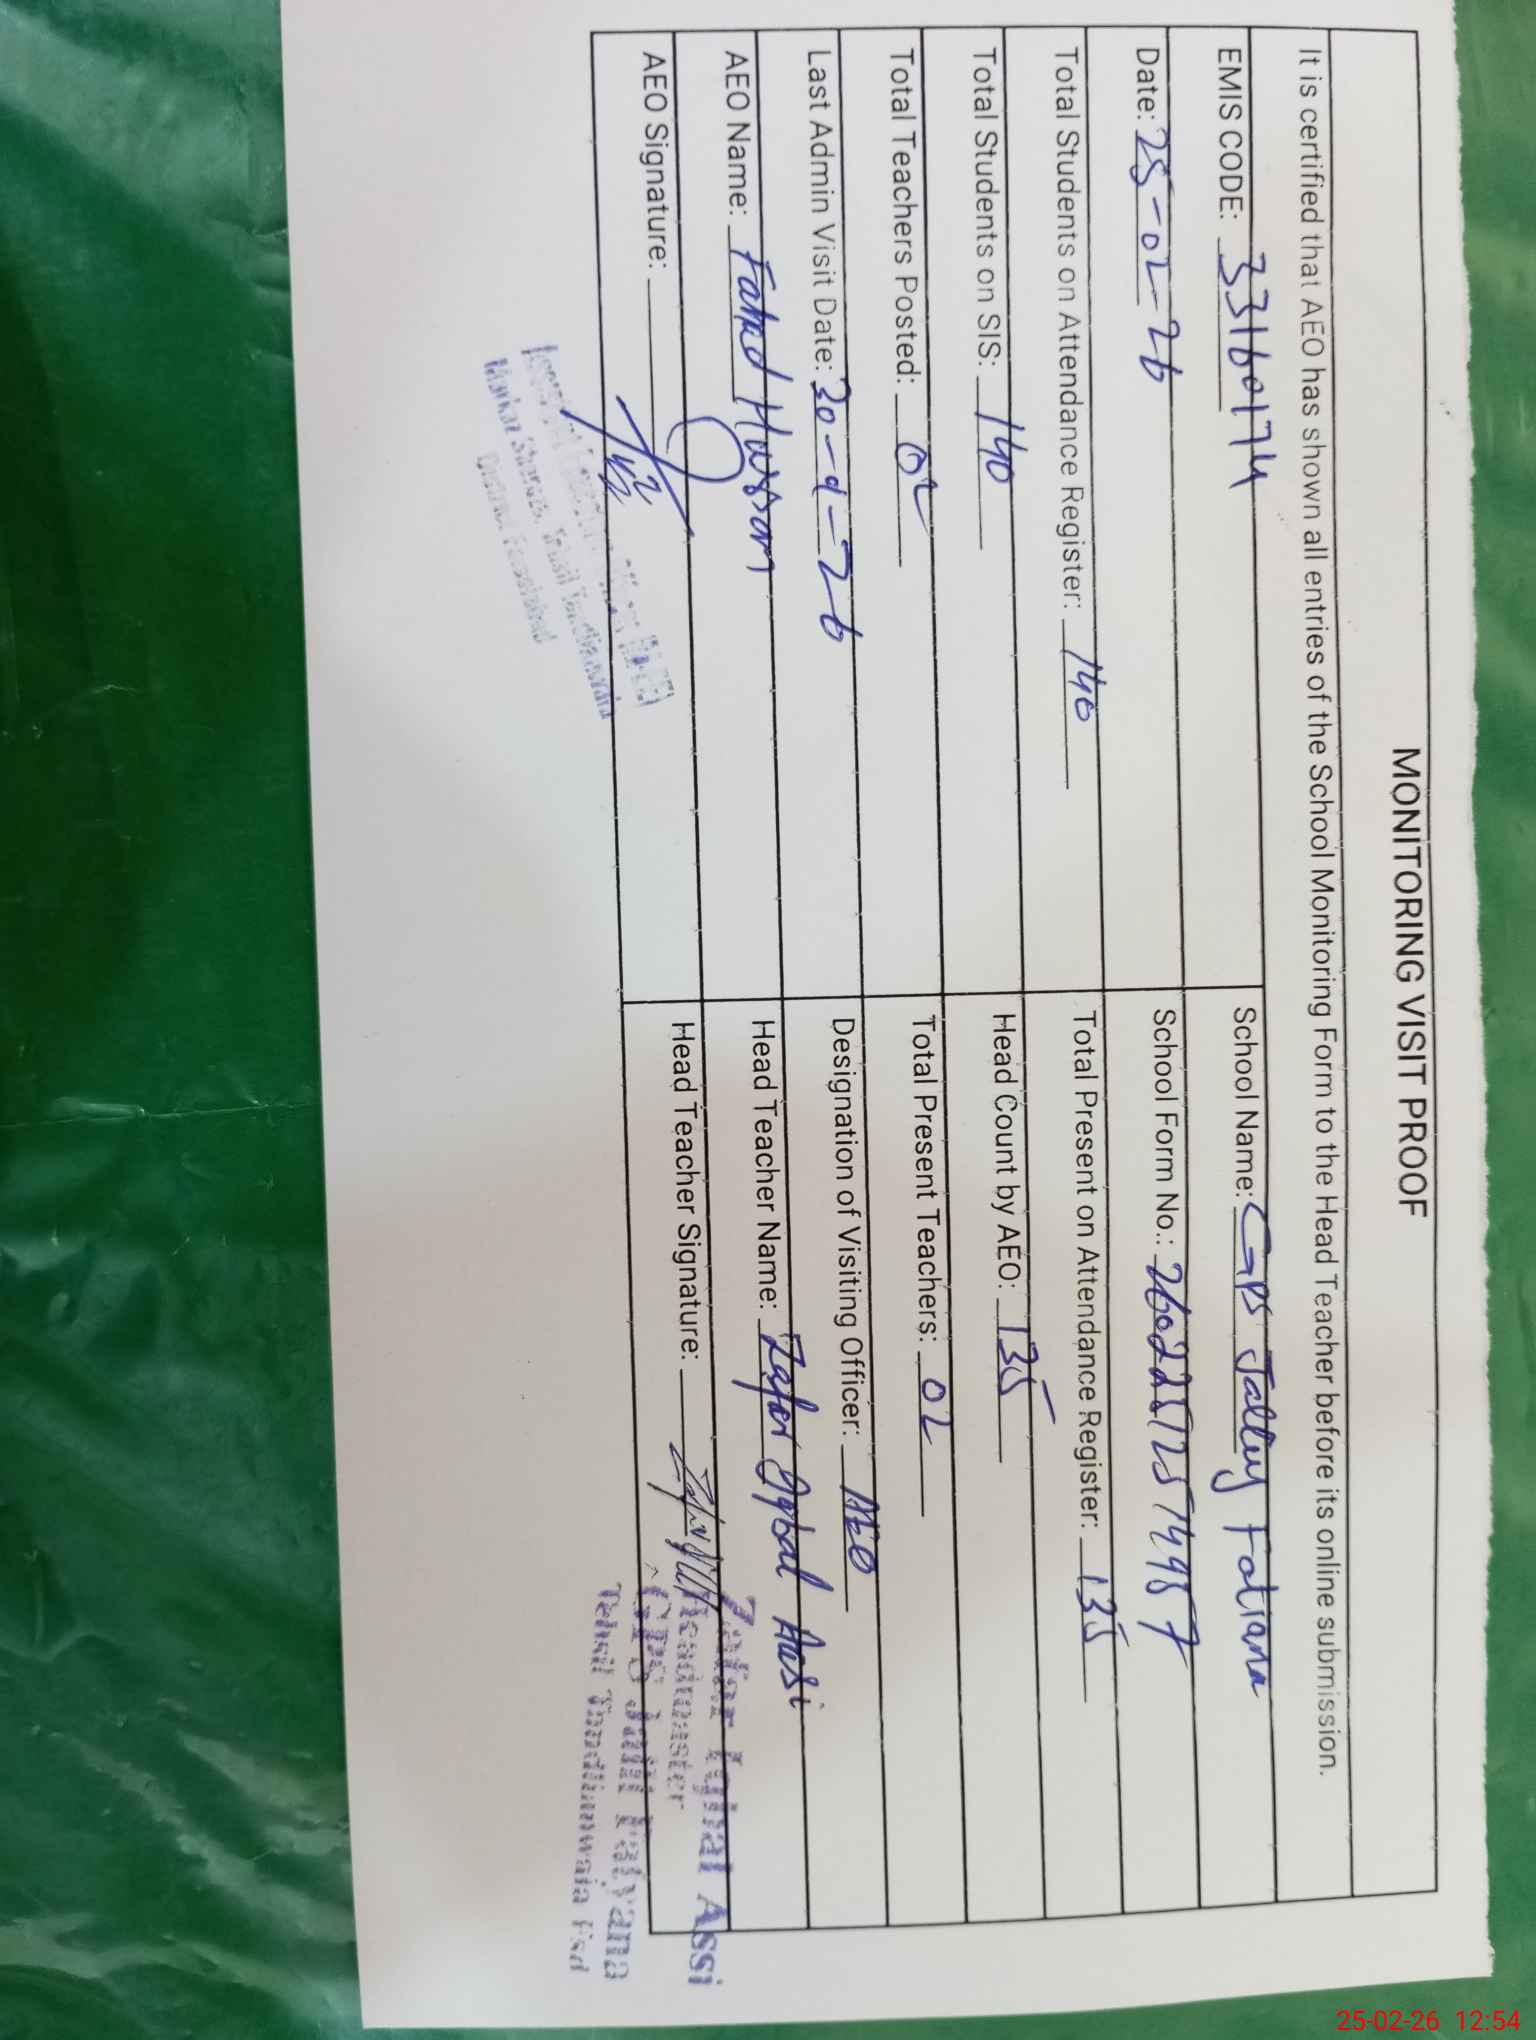 MONITORING VISIT PROOF
It is certified that AEO has shown all entries of the School Monitoring Form to the Head Teacher before its online submission.
EMIS CODE: 33160174 School Name: GPS Jalley Fatiana
Date: 25-02-26 School Form No.:
Total Students on Attendance Register: 140 Total Present on Attendance Register: 135
Total Students on SIS: 140 Head Count by AEO: 135
Total Teachers Posted: 02 Total Present Teachers: 02
Last Admin Visit Date: Designation of Visiting Officer: AEO
AEO Name: Hassan Head Teacher Name: Zafar Iqbal Assi
AEO Signature: Head Teacher Signature:
Zafar Iqbal Assi
Headmaster
GPS Jalli Fatyana
Tehsil Tandlianwala Fsd
25-02-26 12:54